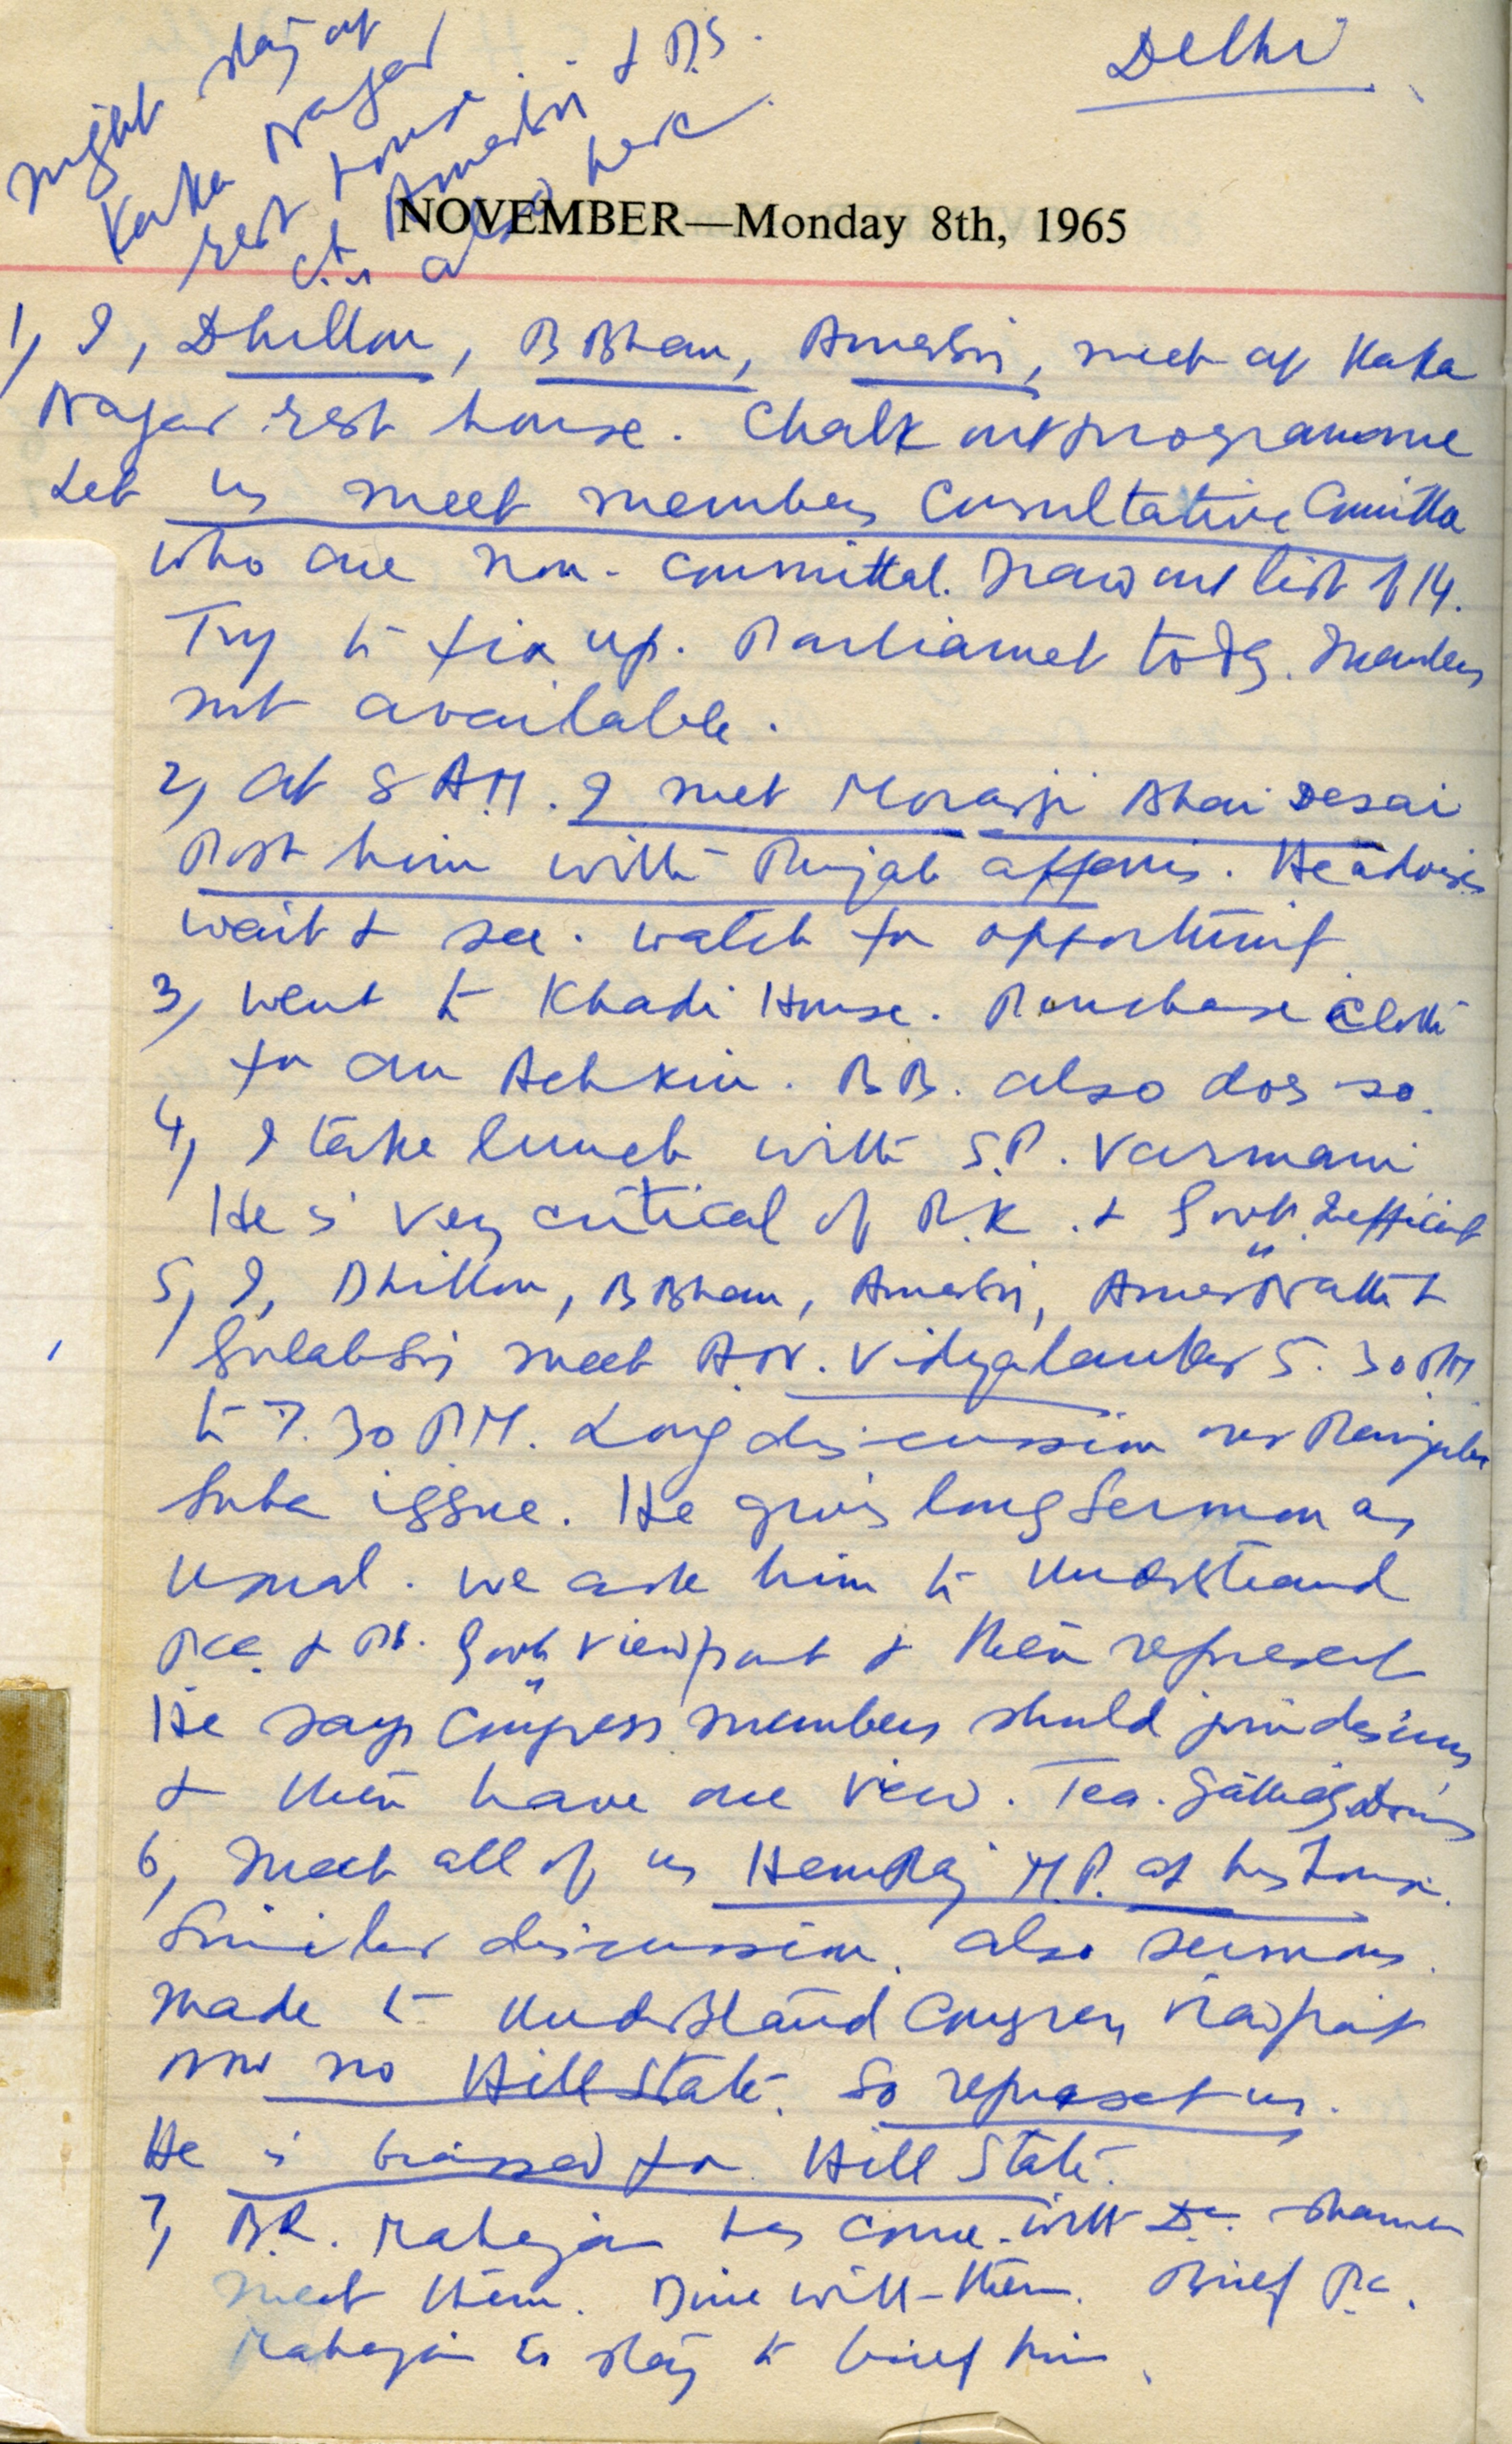 Delhi
Night stay at
Kaka Nagar
rest house
Amar Sin & P.S.
also here
NOVEMBER—Monday 8th, 1965
1, I, Dhillon, B Bhan, Amar Sin, meet at Kaka
Nagar rest house. Chalk out programme
Let us meet members Consultative Comittee
who are non-committal. Draw out list of 14.
Try to fix up. Parliamet todg. Members
not available.
2, At 8 A.M. I met Morarji Bhai Desai
Post him with Punjab affairs. He advises
wait & see. Watch for opportunity
3, Went to Khadi House. Purchase Cloth
for an Achkin. B.B. also does so.
4, I take lunch with S.P. Varmani
He is very critical of R.K. & Govt. Inefficient
5, I, Dhillon, B Bhan, Amar Sin, Amar Nath &
Gulab Sin meet A.N. Vidyalankar 5.30 PM
to 7.30 P.M. Long discussion over Punjabi
Suba issue. He gives long Sermon as
usual. We ask him to understand
PCC. & Pb. Govt viewpoint & then represent
He says Congress members should join discuss
& then have one view. Tea.
6, Meet all of us Hem Raj M.P. at his house.
Similar discussion. also sermons.
Made to understand Congress viewpoint
now no Hill State. So represent us.
He is biassed for Hill State.
7, Mahajan has come. with Dr. Sharma
meet them. Dine with them. Brief
Mahajan to stay to brief him.